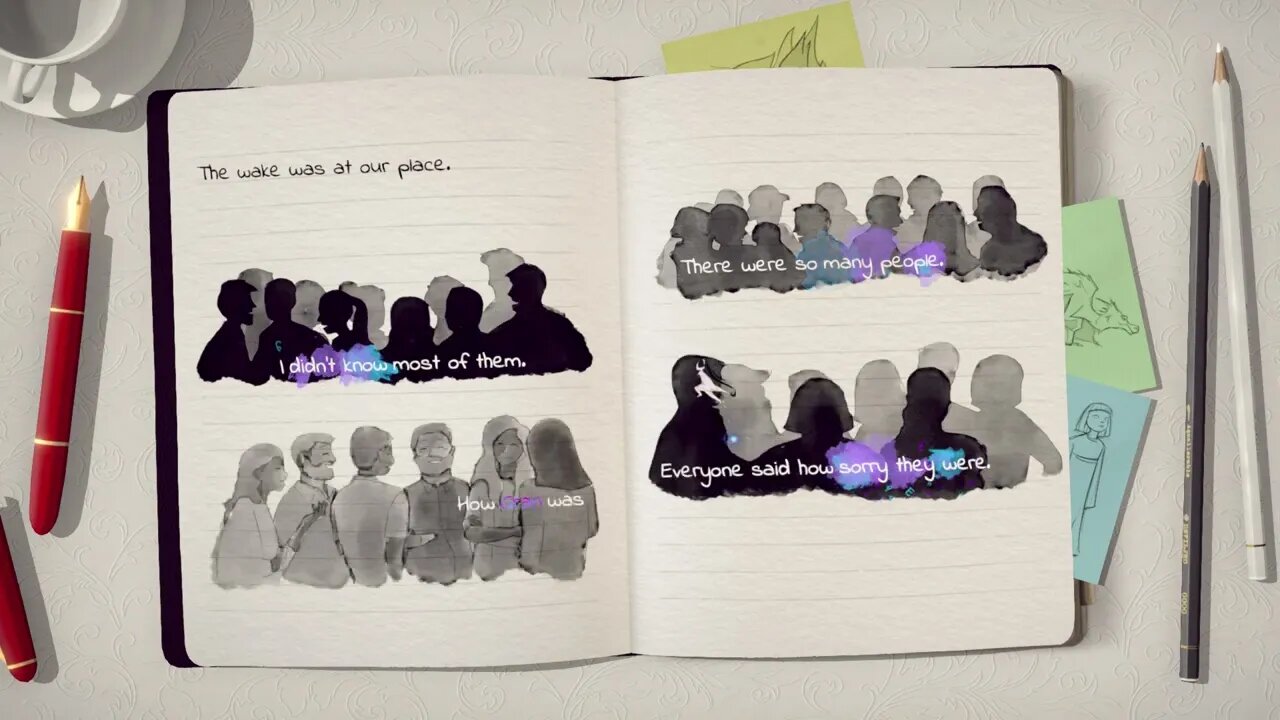 The wake was at our place.
I didn't know most of them.
How Gran was
There were so many people.
Everyone said how sorry they were.